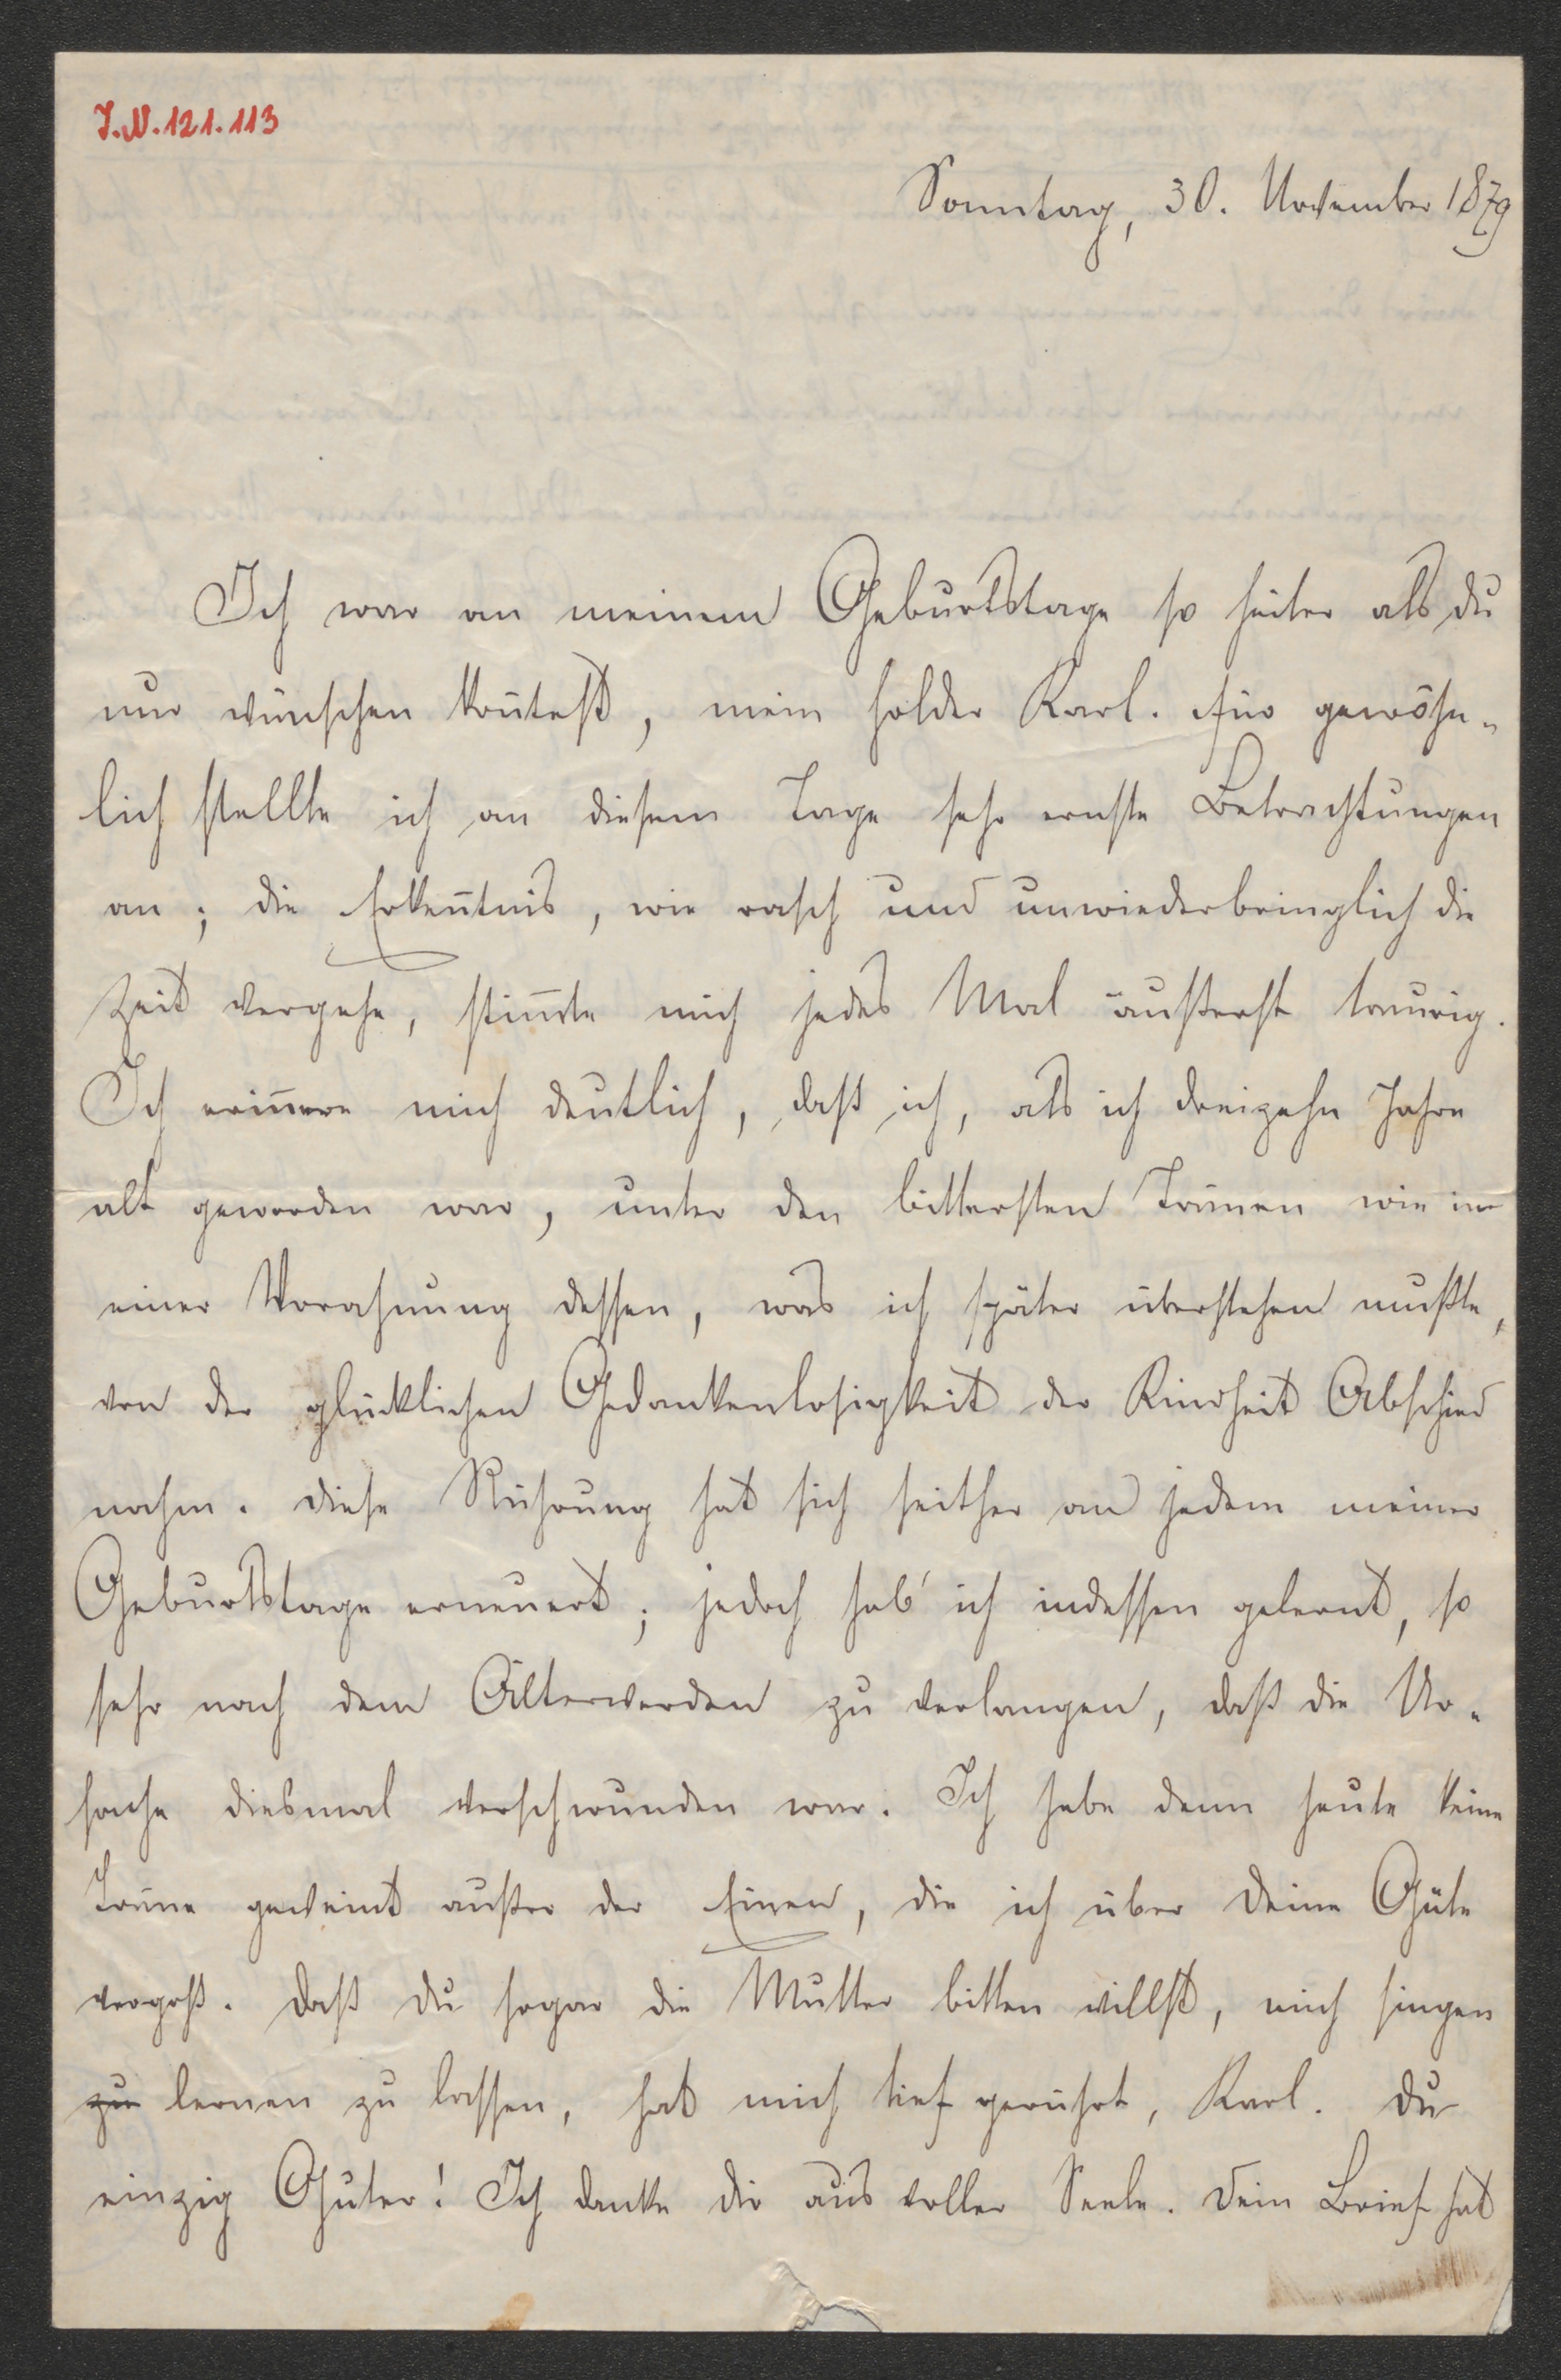 I.N. 121.113
Sonntag, 30. November 1879
Ich war an meinem Geburtstage so heiter als du
nur wünschen kon̄test, mein holder Karl. Für gewöhn-
lich stellte ich an diesem Tage sehr ernste Betrachtungen
an; die Erken̄tnis, wie rasch und unwiederbringlich die
Zeit vergehe, stim̄te mich jedes Mal äußerst traurig.
Ich erin̄ere mich deutlich, daß ich, als ich dreizehn Jahre
alt geworden war, unter den bittersten Tränen wie in
einer Vorahnung dessen, was ich später überstehen mußte,
von der glücklichen Gedankenlosigkeit der Kindheit Abschied
nahm. Diese Rührung hat sich seither an jedem meiner
Geburtstage erneuert; jedoch hab' ich indessen gelernt, so
sehr nach dem Älterwerden zu verlangen, daß die Ur-
sache diesmal verschwunden war. Ich habe denn heute keine
Träne geweint außer der Einen, die ich über deine Güte
vergoß. Daß du sogar die Mutter bitten willst, mich singen
zu lernen zu lassen, hat mich tief gerührt, Karl. Du
einzig Guter! Ich danke dir aus voller Seele. Dein Brief hat